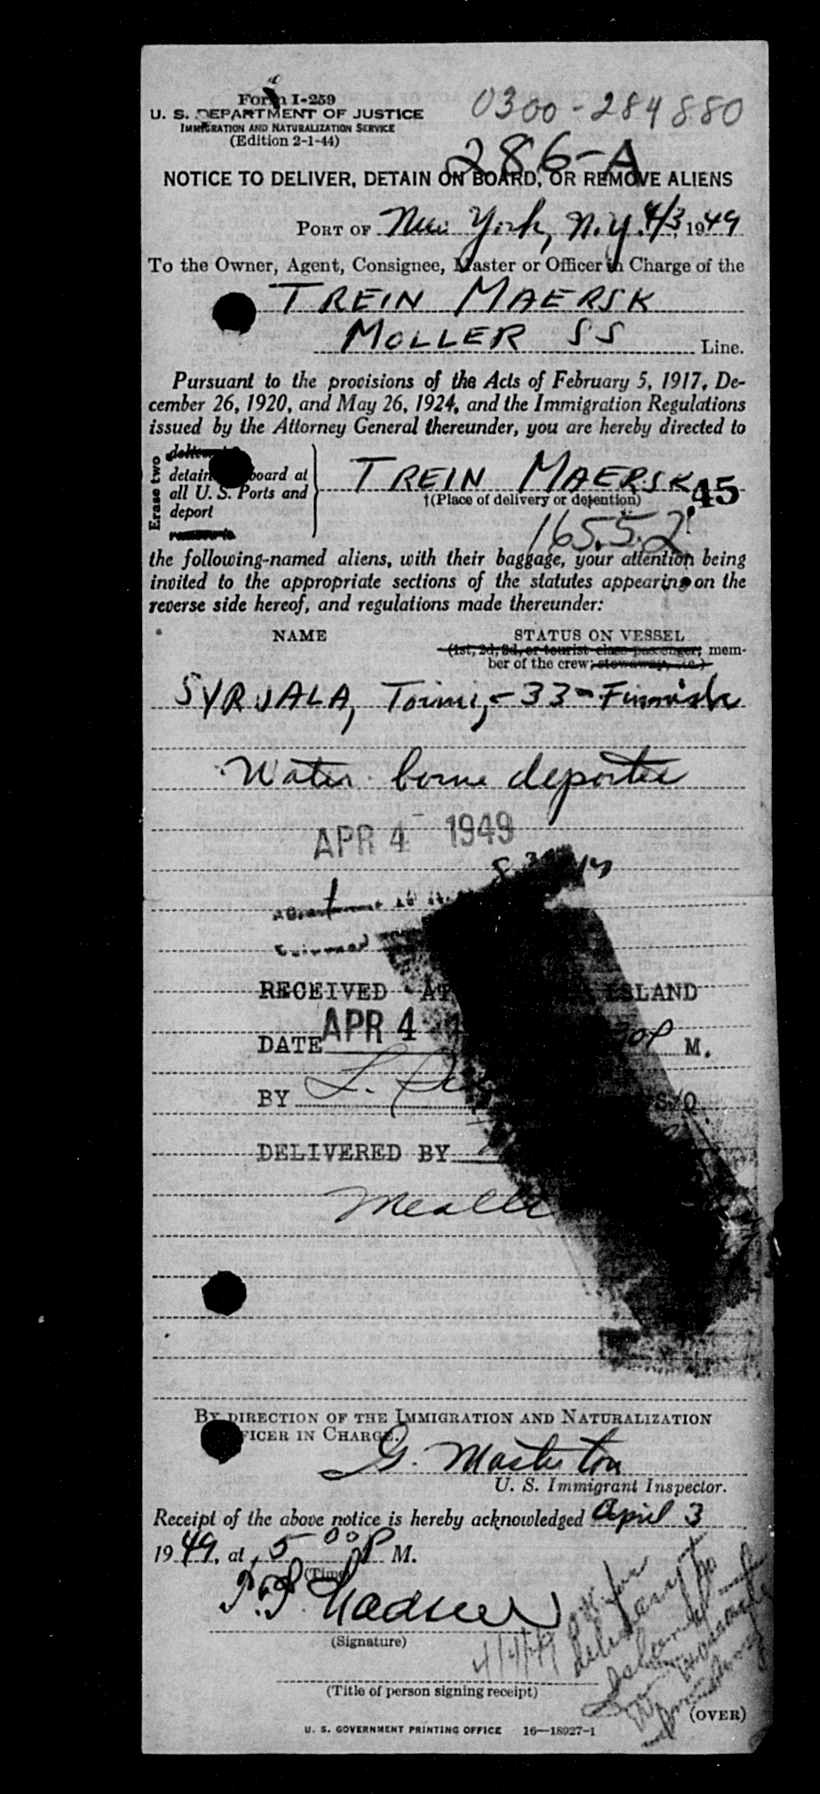 Form I-259
U. S. DEPARTMENT OF JUSTICE
IMMIGRATION AND NATURALIZATION SERVICE
(Edition 2-1-44)
0300-284880
286-A
NOTICE TO DELIVER, DETAIN ON BOARD, OR REMOVE ALIENS
PORT OF New York, N.Y. 4/3, 1949
To the Owner, Agent, Consignee, Master or Officer in Charge of the
TREIN MAERSK
MOLLER SS Line.
Pursuant to the provisions of the Acts of February 5, 1917, De-
cember 26, 1920, and May 26, 1924, and the Immigration Regulations
issued by the Attorney General thereunder, you are hereby directed to
Erase two
detain board at
all U. S. Ports and
deport
TREIN MAERSK
.45
†(Place of delivery or detention)
165.5.2
the following-named aliens, with their baggage, your attention being
invited to the appropriate sections of the statutes appearing on the
reverse side hereof, and regulations made thereunder:
NAME STATUS ON VESSEL
(1st, 2d, 3d, or tourist class passenger; mem-
ber of the crew; stowaway, etc.)
SYRJALA, Toimi, - 33 - Finnish
Water borne deportee
APR 4 - 1949
RECEIVED AT ISLAND
DATE APR 4 M.
BY L. S/O
DELIVERED BY
BY DIRECTION OF THE IMMIGRATION AND NATURALIZATION
OFFICER IN CHARGE.
G. Masterton
U. S. Immigrant Inspector.
Receipt of the above notice is hereby acknowledged April 3
1949, at 5 00 P M.
(Time)
(Signature)
4/4/49
(Title of person signing receipt)
(OVER)
U. S. GOVERNMENT PRINTING OFFICE 16—18927-1